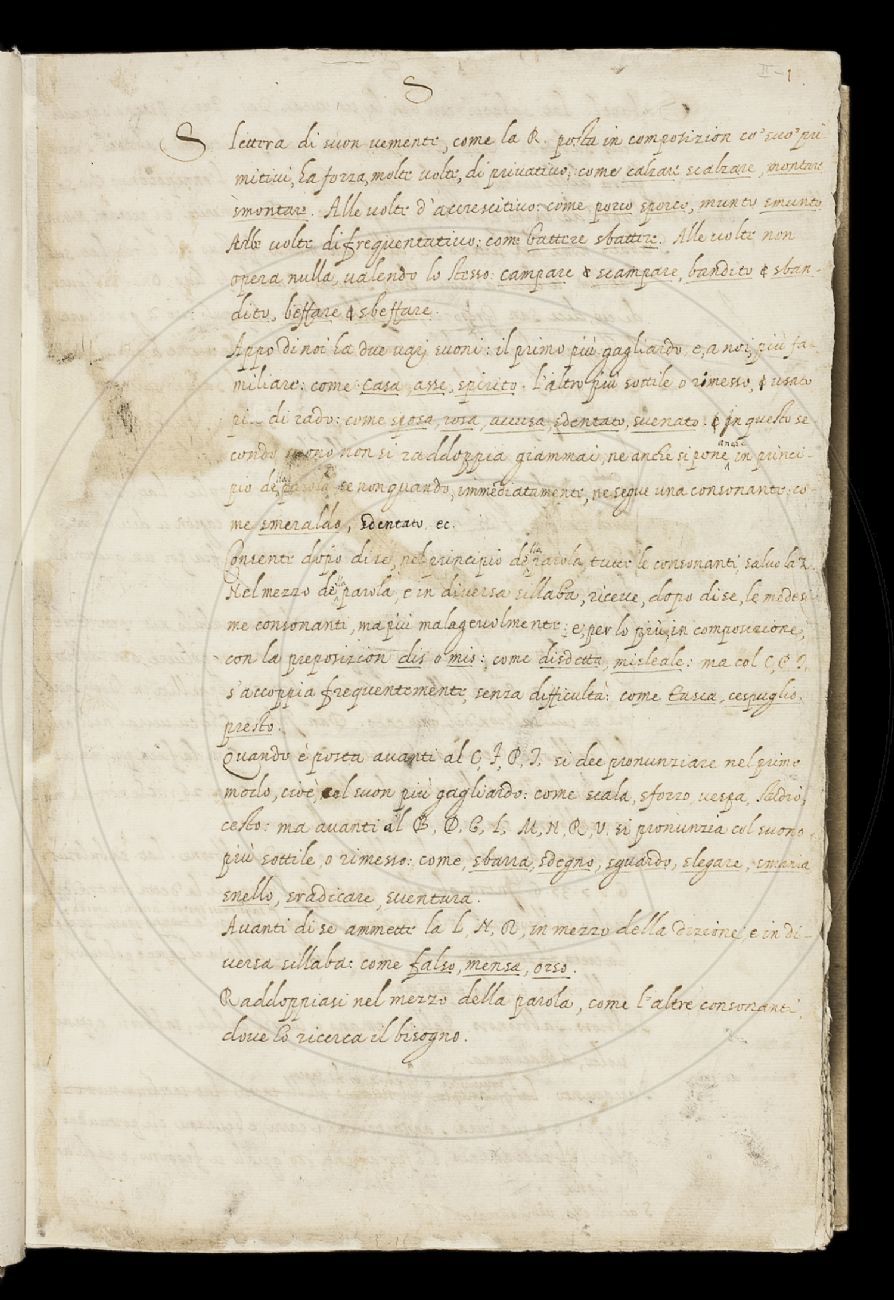 S
II-1
S lettera di suon uemente, come la R. posta in composizion co' suo' pri
mitiui, ha forza, molte uolte, di priuatiuo: come calzare scalzare, montare
smontare. Alle uolte d'accrescitiuo: come porco sporco, munto smunto
Alle uolte di frequentatiuo: come battere sbattere. Alle uolte non
opera nulla, ualendo lo stesso: campare & scampare, bandito & sban-
dito, beffare & sbeffare.
Appo di noi ha due uarj suoni: il primo più gagliardo, e, a noi, più fa-
miliare: come Casa, asse, spirito. l'altro più sottile o rimesso, & usato
di rado: come sposa, rosa, accusa, sdentato, suenato. & in questo se
condo suono non si raddoppia giammai, ne anche si pone anche in princi-
pio della parola se non quando, immediatamente, ne segue una consonante: co-
me smeraldo, sdentato ec.
Consente dopo di se, nel principio della parola, tutte le consonanti, saluo la Z.
Nel mezzo della parola, e in diuersa sillaba, riceue, dopo di se, le medesi
me consonanti, ma più malageuolmente: e, per lo più, in composizione,
con la preposizion dis o mis: come disdetta, misleale: ma col C, P, T,
s'accoppia frequentemente, senza difficultà: come tasca, cespuglio,
presto.
Quando è posta auanti al C, F, P, T. si dee pronunziare nel primo
modo, cioè, col suon più gagliardo: come scala, sforzo, uespa, stadio,
cesto: ma auanti al B, D, G, L, M, N, R, V. si pronunzia col suono
più sottile, o rimesso: come, sbarra, sdegno, sguardo, slegare, smania
snello, sradicare, suentura.
Auanti di se ammette la L, N, R, in mezzo della dizione, e in di-
uersa sillaba: come falso, mensa, orso.
Raddoppiasi nel mezzo della parola, come l'altre consonanti,
doue lo ricerca il bisogno.